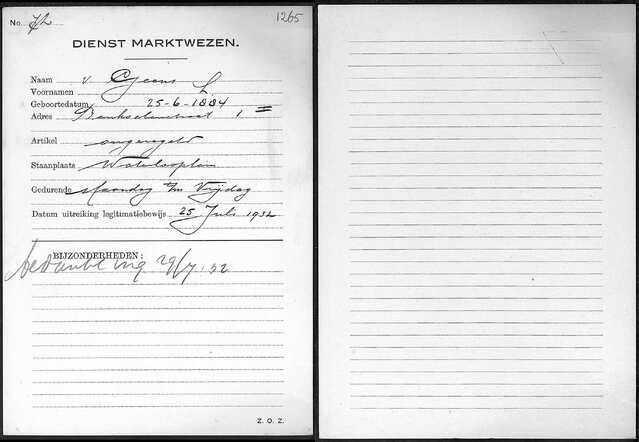 No. 1265
DIENST MARKTWEZEN.
Naam v.
Voornamen
Geboortedatum 25-6-1884
Adres 1 =
Artikel ongeregeld
Staanplaats Waterlooplein
Gedurende Maandag t/m Vrijdag
Datum uitreiking legitimatiebewijs 25 Juli 1932
BIJZONDERHEDEN:
29/7.32
Z. O. Z.